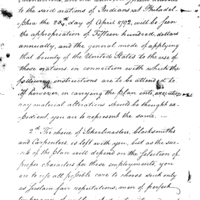 the said nations of Indians, at Philadel-
phia the 23d day of April 1792, will be seen
the appropriation of Fifteen hundred dollars
annually, and the general mode of applying
that bounty of the United States to the use of
those nations in connection with which the
following instructions are to be attended to
If however, in carrying the plan into
any material alterations should be thought ex-
pedient, you are to represent the same.
2d. The choice of Schoolmasters, Blacksmiths
and Carpenters is left with you, but as the suc-
cess of the Plan will depend on the selection of
proper characters for these employments, you
are to use all possible care to choose such only
as sustain fair reputations, men of perfect